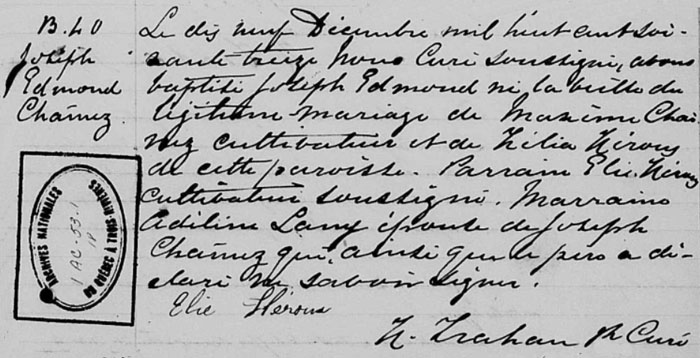 B.40
Joseph
Edmond
Chainez
Le dix neuf Décembre mil huit cent soi-
xante treize Nous Curé soussigné, avons
baptisé Joseph Edmond né la veille du
légitime mariage de Maxime Chai-
nez cultivateur et de Zélia Hérous
de cette paroisse. Parrain Elie Hérous
cultivateur soussigné. Marraine
Adiline Lamy épouse de Joseph
Chainez qui, ainsi que le père a dé-
claré ne savoir signer.
Elie Hérous
H. Trahan Ptr Curé
ARCHIVES NATIONALES
DU QUEBEC A TROIS-RIVIERES
1 AC-53.1